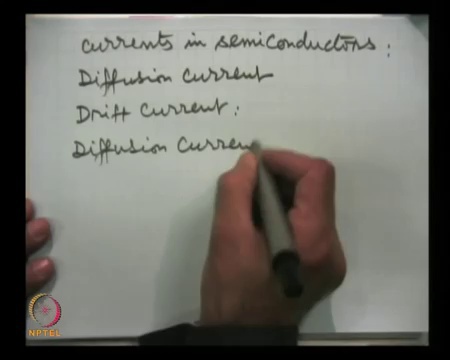 currents in semiconductors:
Diffusion current
Drift current:
Diffusion curren
NPTEL